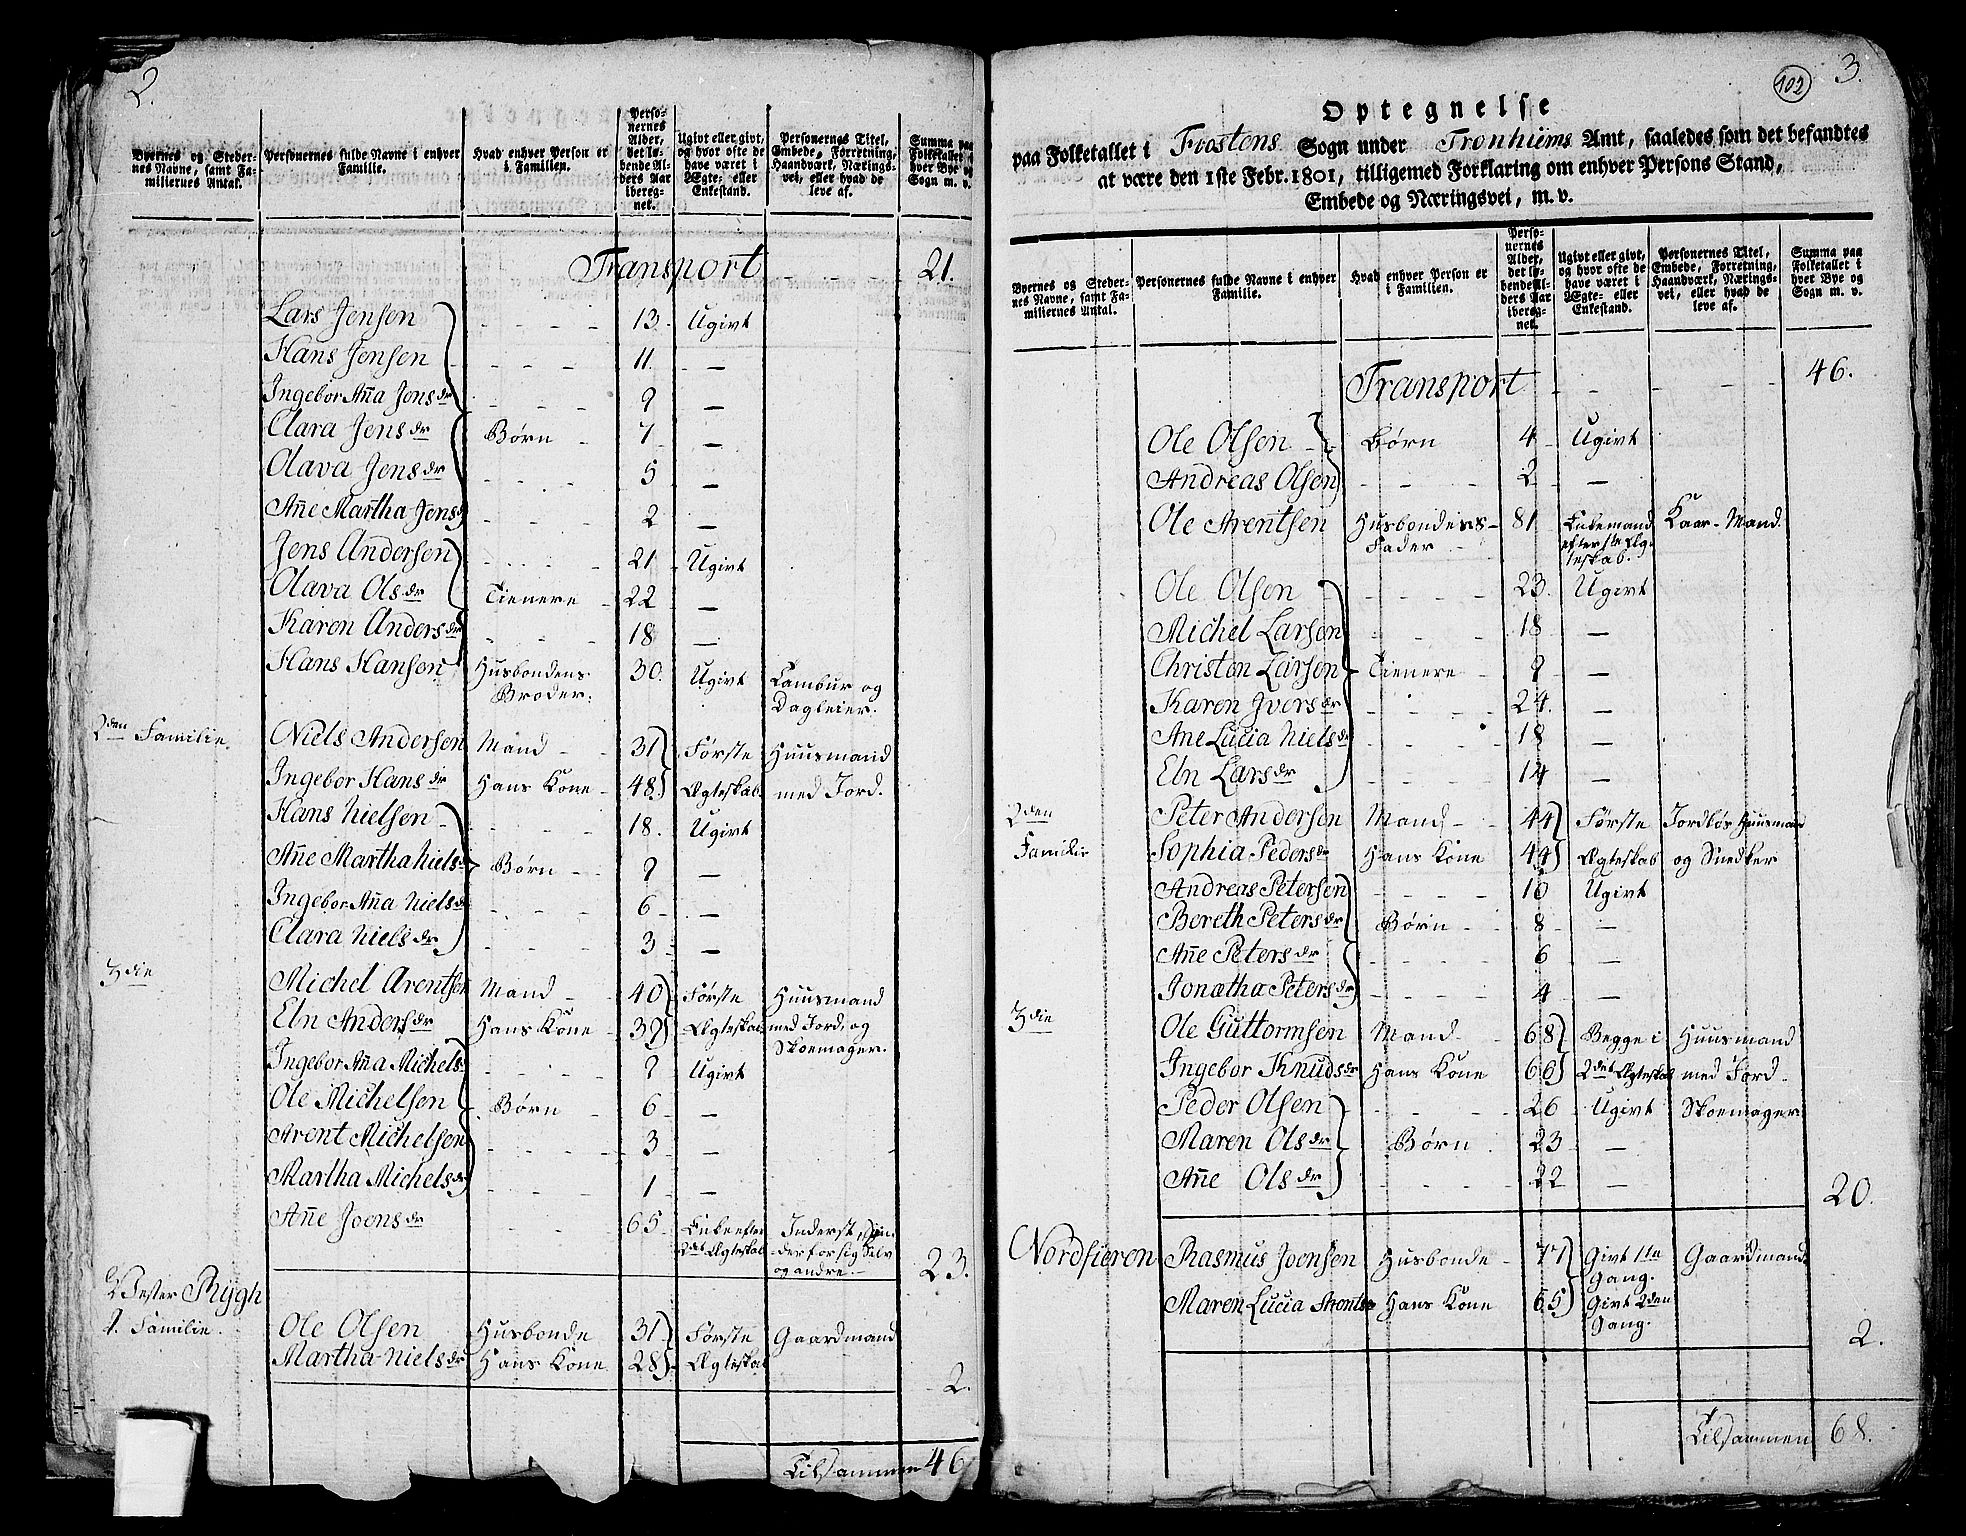 2.
Byernes og Stedernes Navne, samt Familiernes Antal. | Personernes fulde Navne i enhver Familie. | Hvad enhver Person er i Familien. | Personernes Alder, det løbende Alders Aar iberegnet. | Ugivt eller givt, og hvor ofte de have været i Ægte- eller Enkestand. | Personernes Titel, Embede, Forretning, Haandværk, Næringsvei, eller hvad de leve af. | Summa paa Folketallet i hver Bye og Sogn m. v.
Transport - - - 21.
Lars Jensen - - - - 13. Ugivt
Hans Jensen - - - - 11. - -
Ingebor Aña Jensdr - - - 9 -
Clara Jensdr Børn - 7 -
Olava Jensdr - - - - 5 -
Añe Martha Jensd - - - - 2 -
Jens Andersen - - - - 21 Ugivt
Olava Olsdr Tienere - 22 -
Karen Andersdr - - - 18 -
Hans Hansen Husbondens Broder. 30. Ugivt Tambur og Dagleier.
2den Familie. Niels Andersen Mand - - 31 Første Huusmand
Ingebor Hansdr Hans Kone - 48 Ægteskab. med Jord.
Hans Nielsen - - - - 18. Ugivt
Añe Martha Nielsd Børn - - 9 -
Ingebor Aña Nielsd - - - 6 - -
Clara Nielsdr - - - - 3 -
3die Michel Arentsen Mand - - 40 Første Huusmand
Eln Andersdr Hans Kone - 39 Ægteskab med Jord og Skoemager.
Ingebor Aña Michelsd - - - 9 Ugivt
Ole Michelsen Børn - 6 -
Arent Michelsen - - - - 3 -
Martha Michelsdr - - - 1 -
Añe Joensdr - - 65 Enke efter 2det Ægteskab Inderst, som der for sig Selv og andre. - 23.
Vester Rygh
1. Familie. Ole Olsen Husbonde 31 Første Gaardmand
Martha Nielsdr Hans Kone 28 Ægteskab
2.
Tilsammen 46
102
3.
Optegnelse
paa Folketallet i Frostens Sogn under Tronhiems Amt, saaledes som det befandtes
at være den 1ste Febr. 1801, tilligemed Forklaring om enhver Persons Stand,
Embede og Næringsvei, m. v.
Byernes og Stedernes Navne, samt Familiernes Antal. | Personernes fulde Navne i enhver Familie. | Hvad enhver Person er i Familien. | Personernes Alder, det løbende Alders Aar iberegnet. | Ugivt eller givt, og hvor ofte de have været i Ægte- eller Enkestand. | Personernes Titel, Embede, Forretning, Haandværk, Næringsvei, eller hvad de leve af. | Summa paa Folketallet i hver Bye og Sogn m. v.
Transport - - - - 46.
Ole Olsen - Børn 4 - Ugivt
Andreas Olsen - - - - 2 - -
Ole Arentsen Husbondens Fader - 81 Enkemand efter 1te Ægteskab. Kaar-Mand.
Ole Olsen - - - - 23. Ugivt
Michel Larsen - - - 18 -
Christen Larsen Tienere - 9 -
Karen Iversdr - - - - 24. -
Ane Lucia Nielsd - - - - 18 -
Eln Larsdr - - - - 14 -
2den Peter Andersen Mand - - 44 Første Jordløs Huusmand
Familie Sophia Pedersdr Hans Kone 44 Ægteskab og Snedker
Andreas Petersen - - - 10 Ugivt
Bereth Petersdr Børn - - 8 - -
Añe Petersdr - - - - 6 -
Jonætha Petersdr - - - - 4 -
3die Ole Guttormsen Mand - - 68 Begge i Huusmand
Ingebor Knudsdr Hans Kone 60 2det Ægteskab med Jord -
Peder Olsen - - - - 26 - Ugivt Skoemager
Maren Olsdr Børn. 23 -
Añe Olsdr - - - - 22 -
20.
Nordfieren Rasmus Joensen Husbonde - 77 Givt 1te Gang. Gaardmand.
Maren Lucia Hans Kone 65 Givt 2den Gang.
2.
Tilsammen 68.